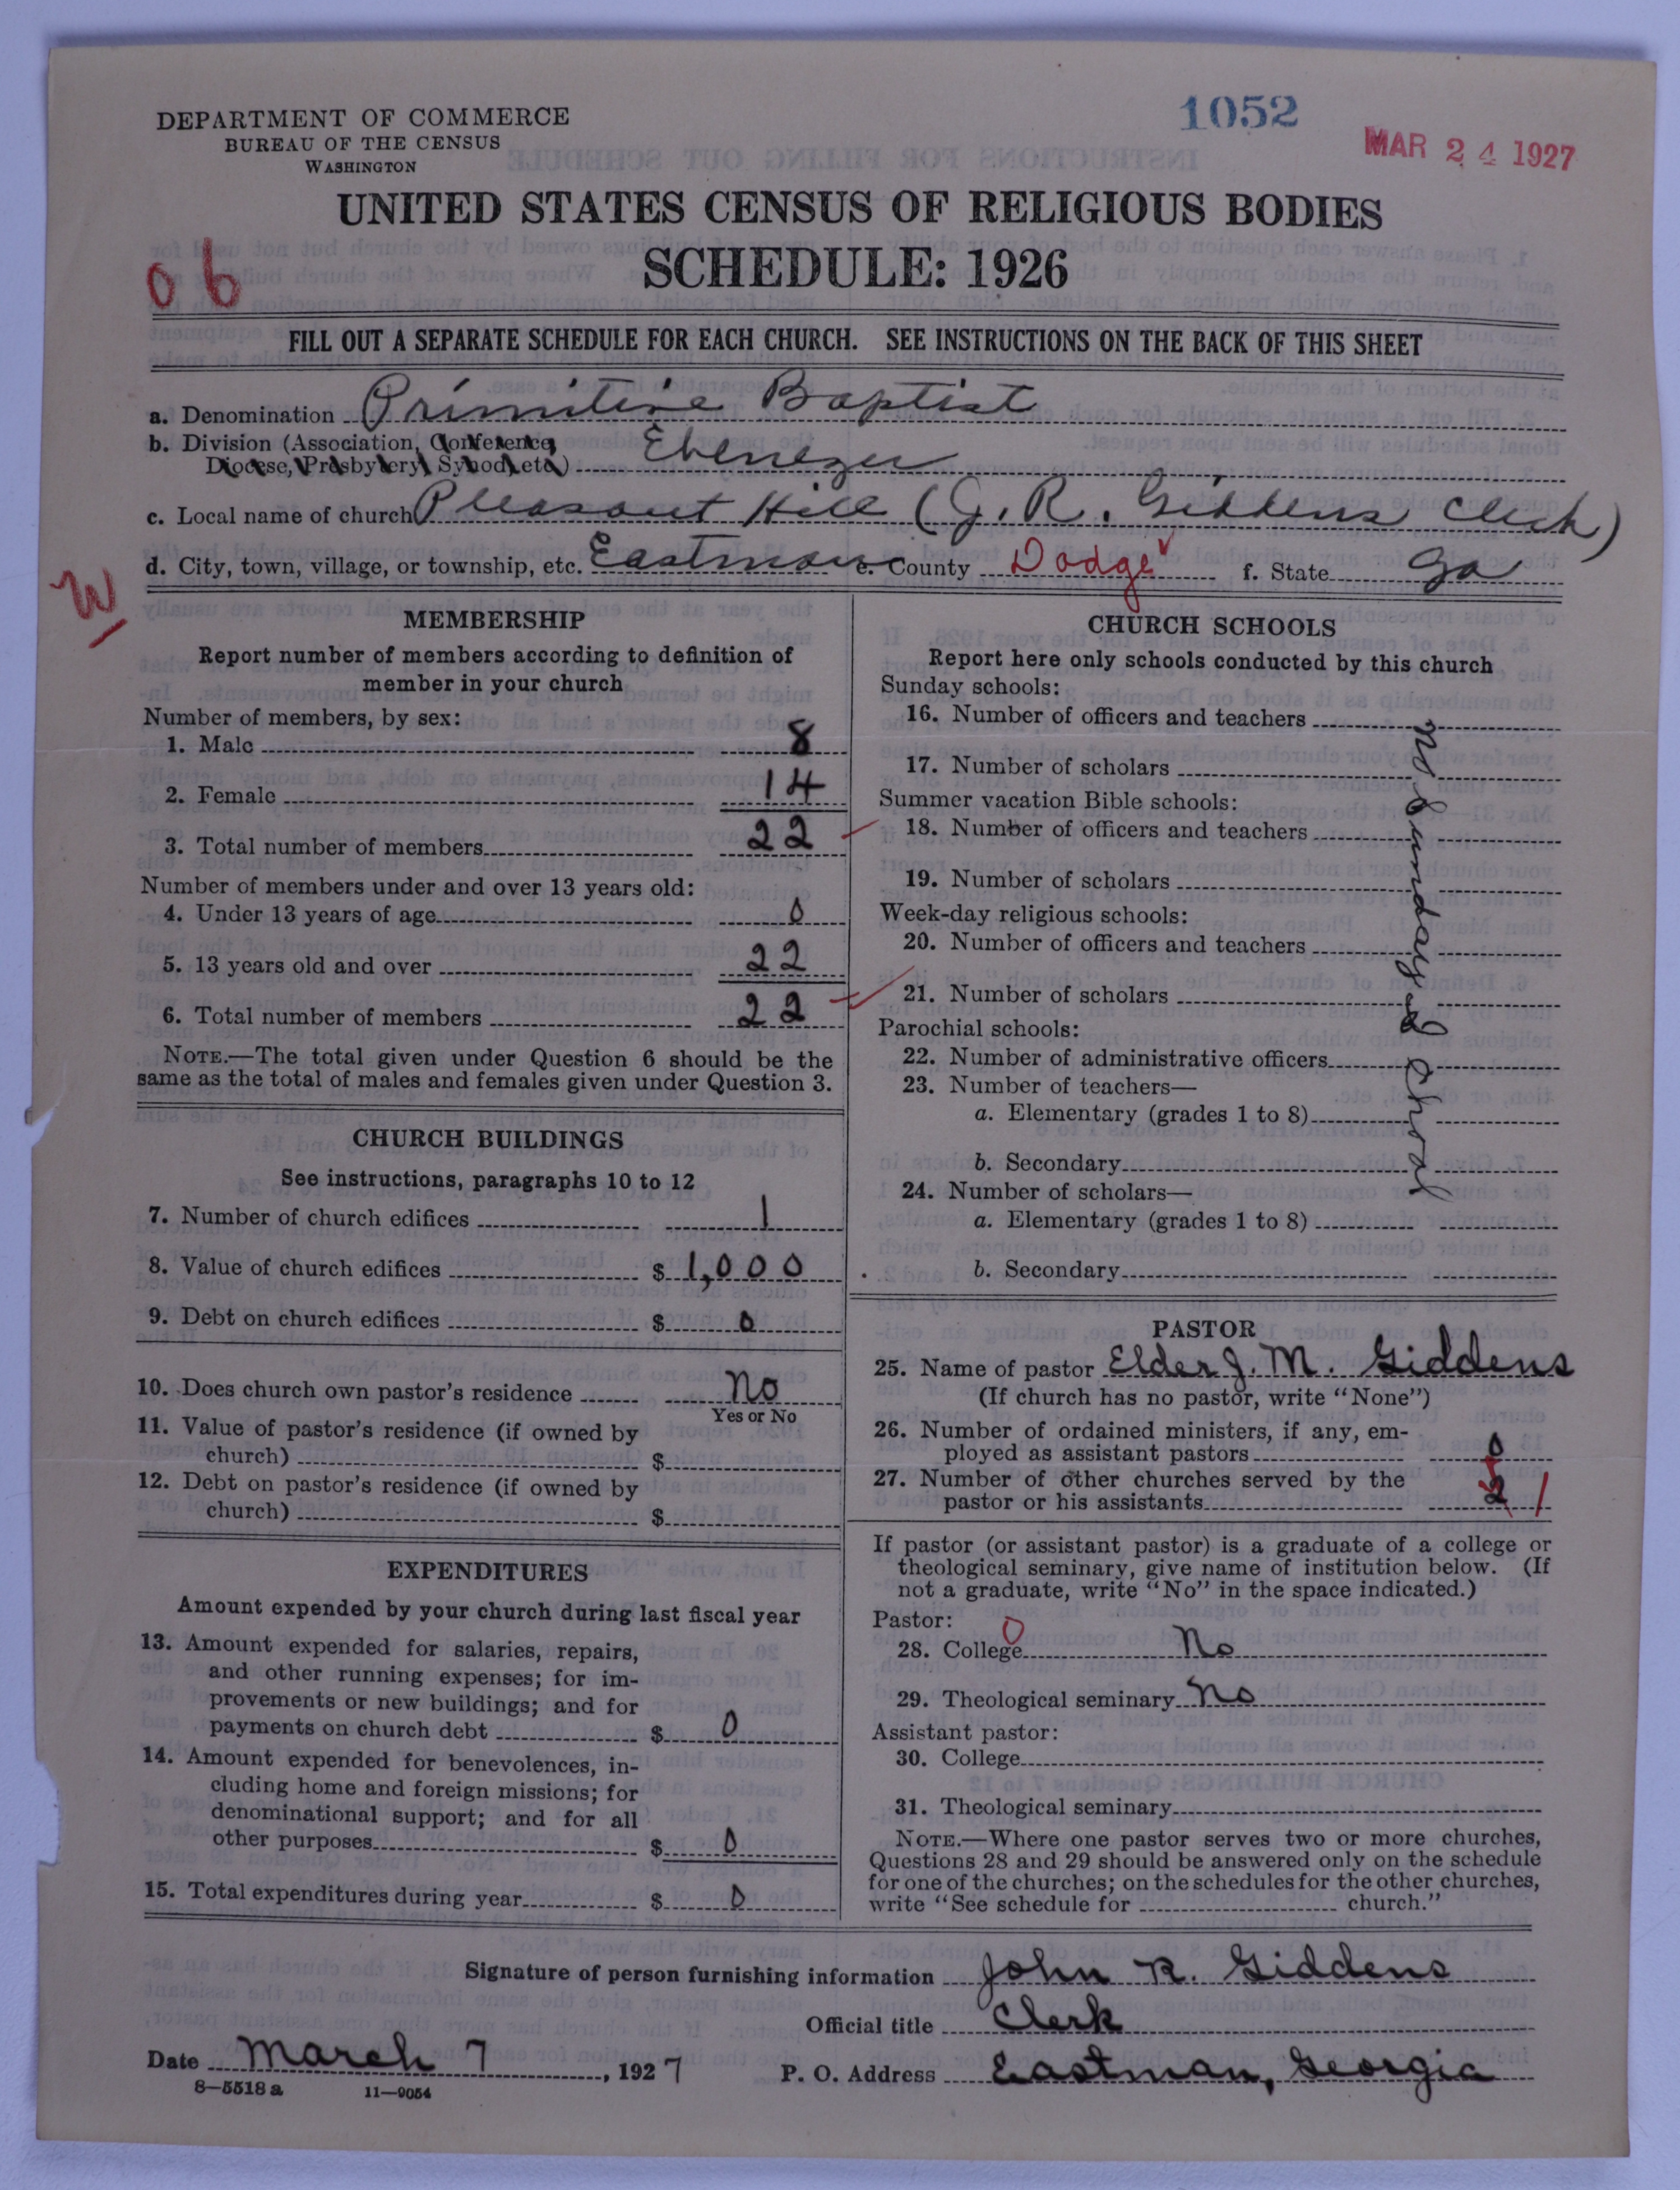 DEPARTMENT OF COMMERCE
BUREAU OF THE CENSUS
WASHINGTON
1052
MAR 24 1927
UNITED STATES CENSUS OF RELIGIOUS BODIES
SCHEDULE: 1926
06
FILL OUT A SEPARATE SCHEDULE FOR EACH CHURCH. SEE INSTRUCTIONS ON THE BACK OF THIS SHEET
a. Denomination Primitive Baptist
b. Division (Association, Conference,
Diocese, Presbytery, Synod, etc.) Ebenezer
c. Local name of church Pleasant Hill (J. R. Giddens Clerk)
d. City, town, village, or township, etc. Eastman e. County Dodge f. State Ga
W
MEMBERSHIP
Report number of members according to definition of
member in your church
Number of members, by sex:
1. Male 8
2. Female 14
3. Total number of members 22
Number of members under and over 13 years old:
4. Under 13 years of age 0
5. 13 years old and over 22
6. Total number of members 22
NOTE.—The total given under Question 6 should be the
same as the total of males and females given under Question 3.
CHURCH BUILDINGS
See instructions, paragraphs 10 to 12
7. Number of church edifices 1
8. Value of church edifices $ 1,000
9. Debt on church edifices $ 0
10. Does church own pastor's residence No
Yes or No
11. Value of pastor's residence (if owned by
church) $
12. Debt on pastor's residence (if owned by
church) $
EXPENDITURES
Amount expended by your church during last fiscal year
13. Amount expended for salaries, repairs,
and other running expenses; for im-
provements or new buildings; and for
payments on church debt $ 0
14. Amount expended for benevolences, in-
cluding home and foreign missions; for
denominational support; and for all
other purposes $ 0
15. Total expenditures during year $ 0
CHURCH SCHOOLS
Report here only schools conducted by this church
Sunday schools:
16. Number of officers and teachers
17. Number of scholars
Summer vacation Bible schools:
18. Number of officers and teachers
19. Number of scholars
Week-day religious schools:
20. Number of officers and teachers
21. Number of scholars
Parochial schools:
22. Number of administrative officers
23. Number of teachers—
a. Elementary (grades 1 to 8)
b. Secondary
24. Number of scholars—
a. Elementary (grades 1 to 8)
b. Secondary
no Sunday School
PASTOR
25. Name of pastor Elder J. M. Giddens
(If church has no pastor, write "None")
26. Number of ordained ministers, if any, em-
ployed as assistant pastors 0
27. Number of other churches served by the
pastor or his assistants 2 1
If pastor (or assistant pastor) is a graduate of a college or
theological seminary, give name of institution below. (If
not a graduate, write "No" in the space indicated.)
Pastor: 0
28. College No
29. Theological seminary No
Assistant pastor:
30. College
31. Theological seminary
NOTE.—Where one pastor serves two or more churches,
Questions 28 and 29 should be answered only on the schedule
for one of the churches; on the schedules for the other churches,
write "See schedule for church."
Signature of person furnishing information John R. Giddens
Official title Clerk
Date March 7, 1927 P. O. Address Eastman, Georgia
8—5518a 11—9054